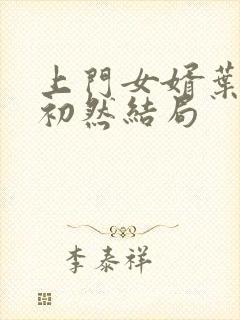 上門女婿葉
初然結局
李泰祥